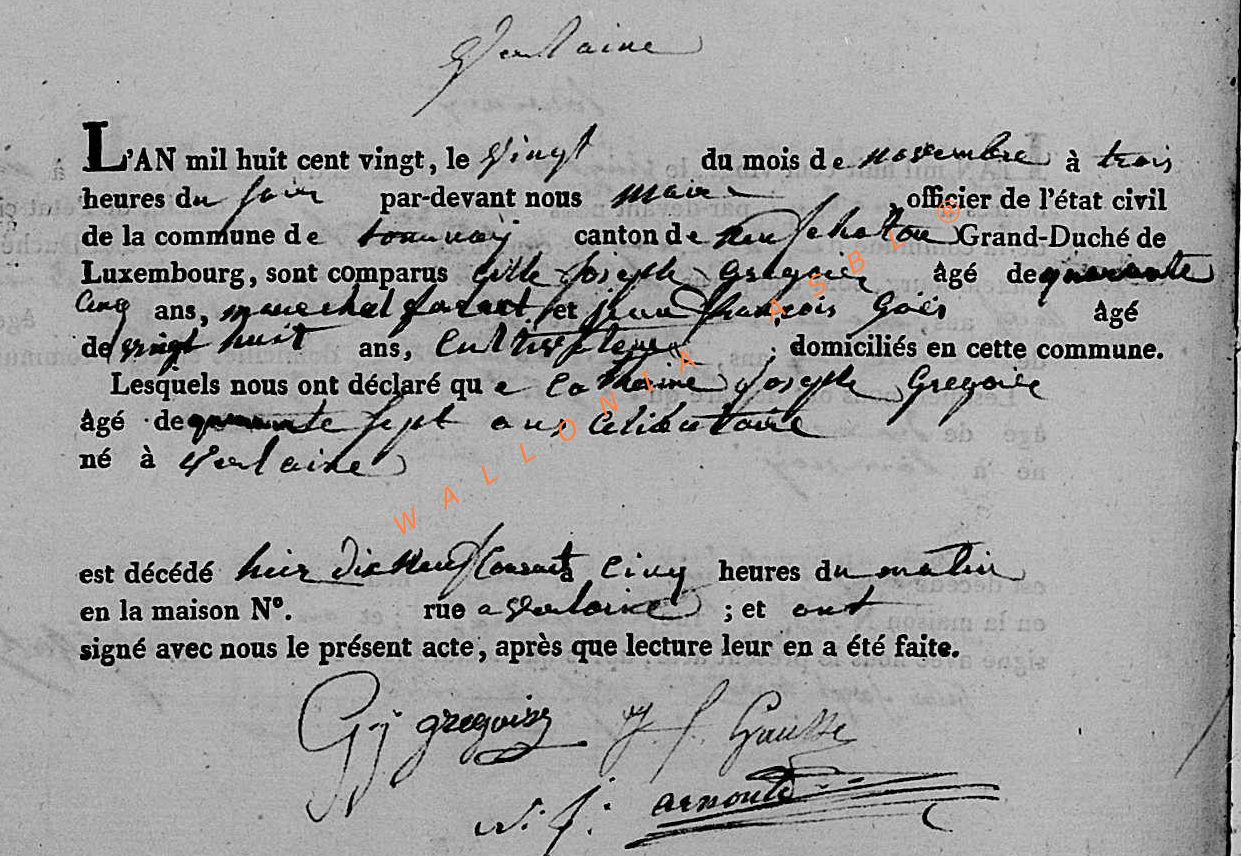 Verlaine
L'AN mil huit cent vingt, le vingt du mois de novembre à trois
heures du soir par-devant nous maire officier de l'état civil
de la commune de tournay canton de neufchateau Grand-Duché de
Luxembourg, sont comparus Gille Joseph Gregoire âgé de quarante
cinq ans, marechal ferant et jean françois Goës âgé
de vingt huit ans, Cultivateur ; domiciliés en cette commune.
Lesquels nous ont déclaré que Catherine Joseph Gregoire
âgé de quarante sept ans Celibataire
né à Verlaine
est décédé hier dix neuf Courant cinq heures du matin
en la maison N°. rue a Verlaine ; et ont
signé avec nous le présent acte, après que lecture leur en a été faite.
GJ gregoire J. f. Gausse
N. J. arnould
WALLONIA ASBL ©